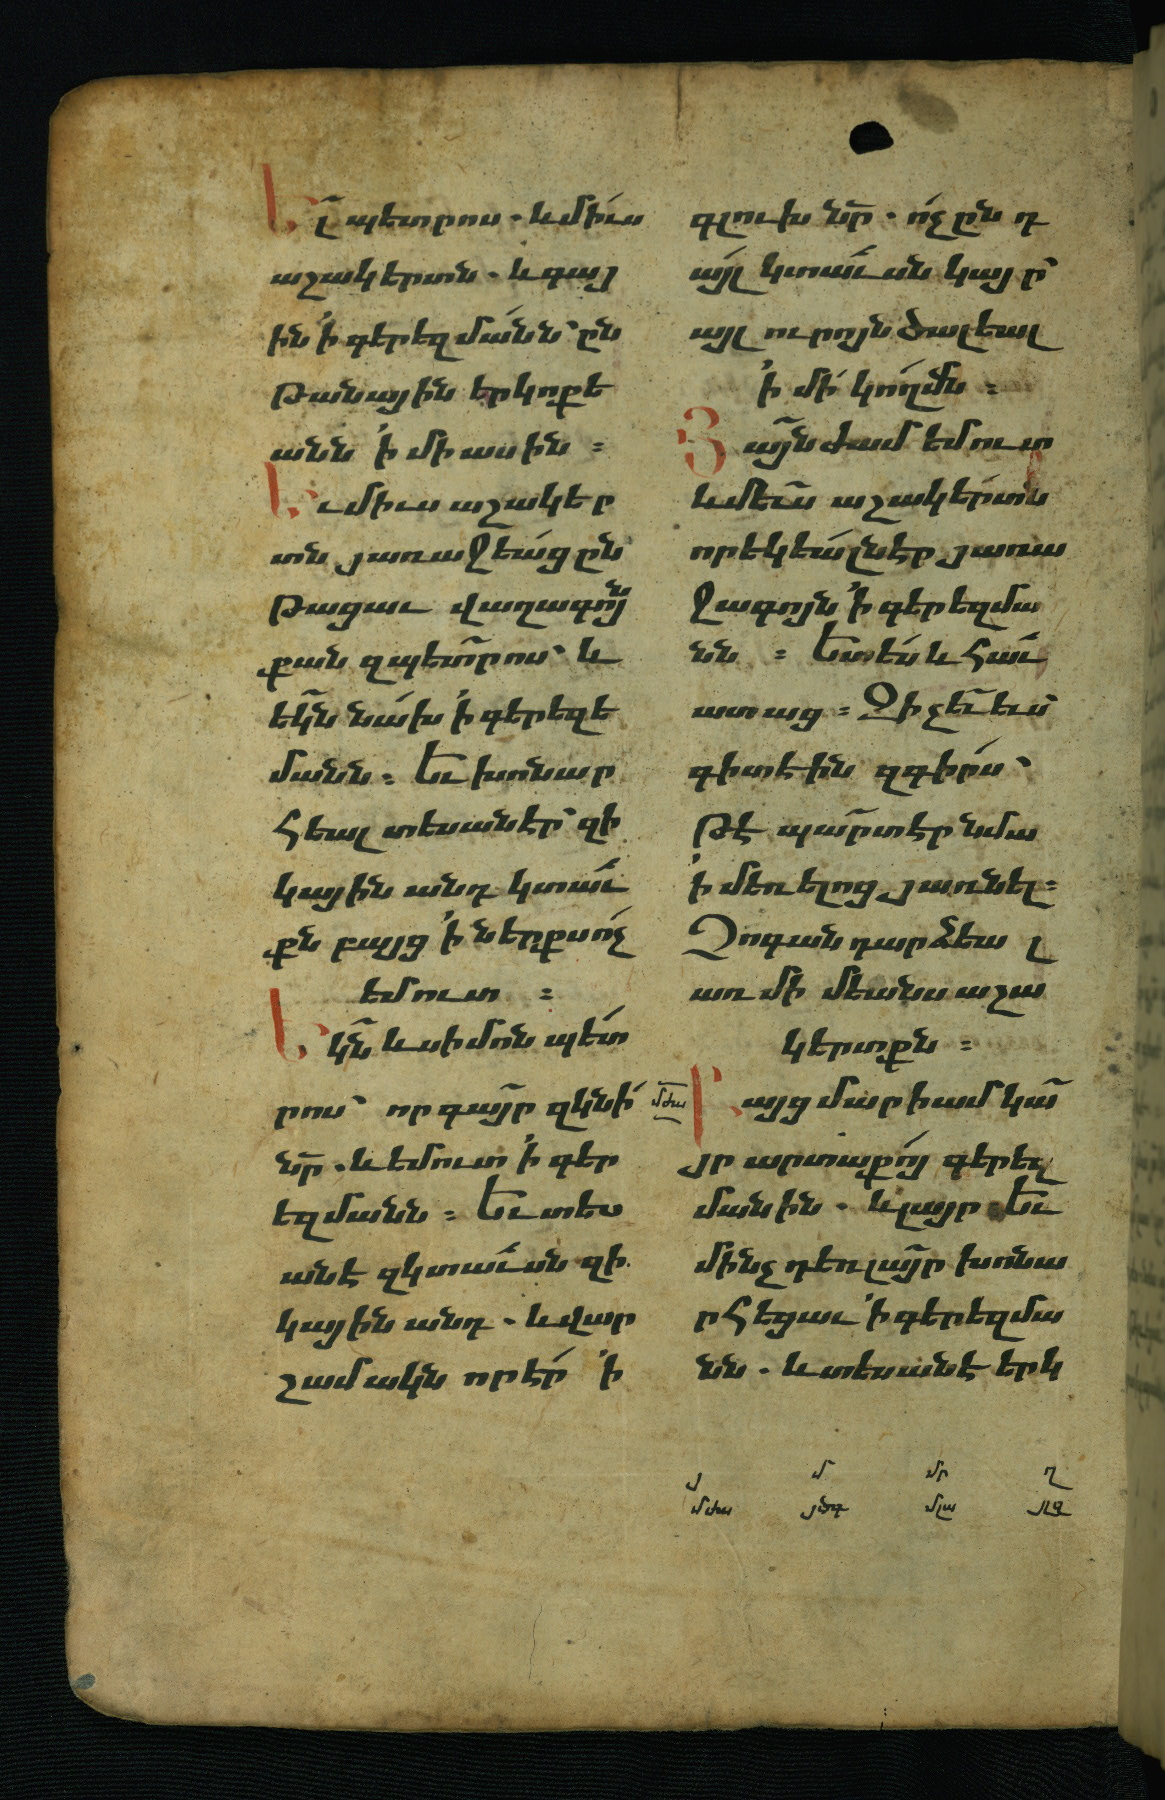 Ել̃ պետրոս · և միւս
աշակերտն · և գայ
ին ՚ի գերեզմանն՝ ըն
Թանային երկոքե
անն ՚ի միասին ։
Եւ միւս աշակեր
տն յառաջեաց ըն
Թացաւ վաղագոյն
քան զպետրոս՝ և
եկն նախ ՚ի գերեզե
մանն ։ Եւ խոնար
Հեալ տեսանէր՝ զի
կային անդ կտաւ
քն բայց ՚ի ներքս ոչ
եմուտ ։
Եկն̃ և սիմոն պետ
րոս՝ որ գայր զկնի
նր̃ · և եմուտ ՚ի գեր
եզմանն ։ Եւ տես
անէ զկտաւսն զի
կային անդ · և վար
շամակն որ էր ՚ի
գլուխ նր̃ · ոչ ընդ
այլ կտաւսն կայր՝
այլ ուրոյն ծալեալ
՚ի մի կողմն ։
Յայն̃ժամ եմուտ
և մեւս աշակերտն
որ եկեալն էր յառա
ջագոյն ՚ի գերեզմա
նն ։ Ետես և Հաւ
ատաց ։ Զի չեւ եւս
գիտէին զգիրս՝
Թէ պարտ էր նմա
՚ի մեռելոց յառնել ։
Չոգան դարձեալ
առ միմեանս աշա
կերտքն ։
մժա
Բայց մարիամ կա̃
յր արտաքոյ գերեզ
մանին · և լայր Եւ
մինչդեռ լայր խոնա
րՀեցաւ ՚ի գերեզմա
նն · և տեսանէ երկ
յ մ մր ղ
մժա յծգ մլա յլզ